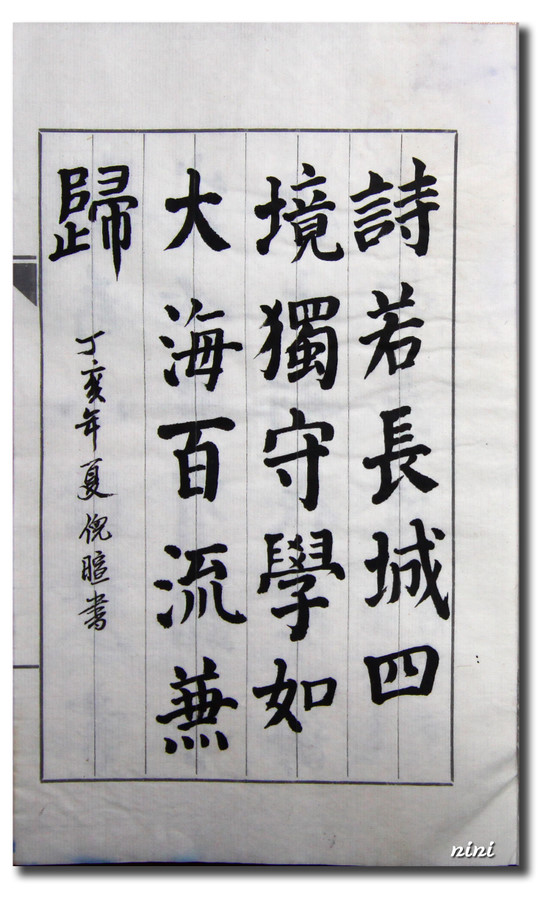 詩若長城四
境獨守學如
大海百流兼
歸
丁亥年夏倪暄書
nini